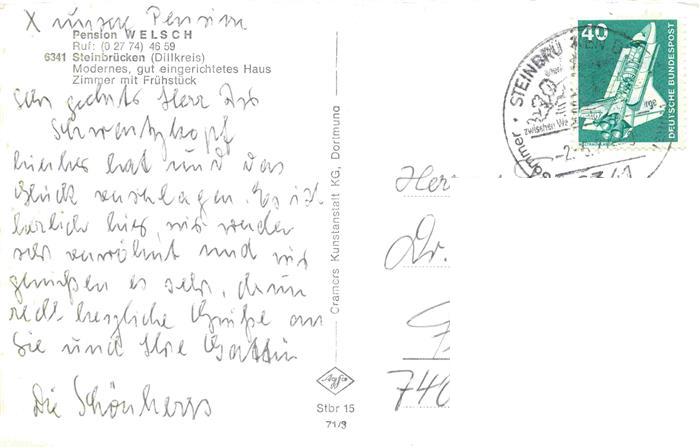 X unsere Pension
Pension WELSCH
Ruf: (0 27 74) 46 59
6341 Steinbrücken (Dillkreis)
Modernes, gut eingerichtetes Haus
Zimmer mit Frühstück
Sehr geehrter Herr Dr.
Schwentzkopf
hierher hat uns das
Glück verschlagen. Es ist
herrlich hier, wir werden
sehr verwöhnt und wir
genießen es sehr, drum
recht herzliche Grüße an
Sie und Ihre Gattin
Die Schönbergs
Cramers Kunstanstalt KG, Dortmund
Agfa
Stbr 15
71/3
40
DEUTSCHE BUNDESPOST
STEINBRÜCKEN
zwischen
6341
Herr
Dr.
740